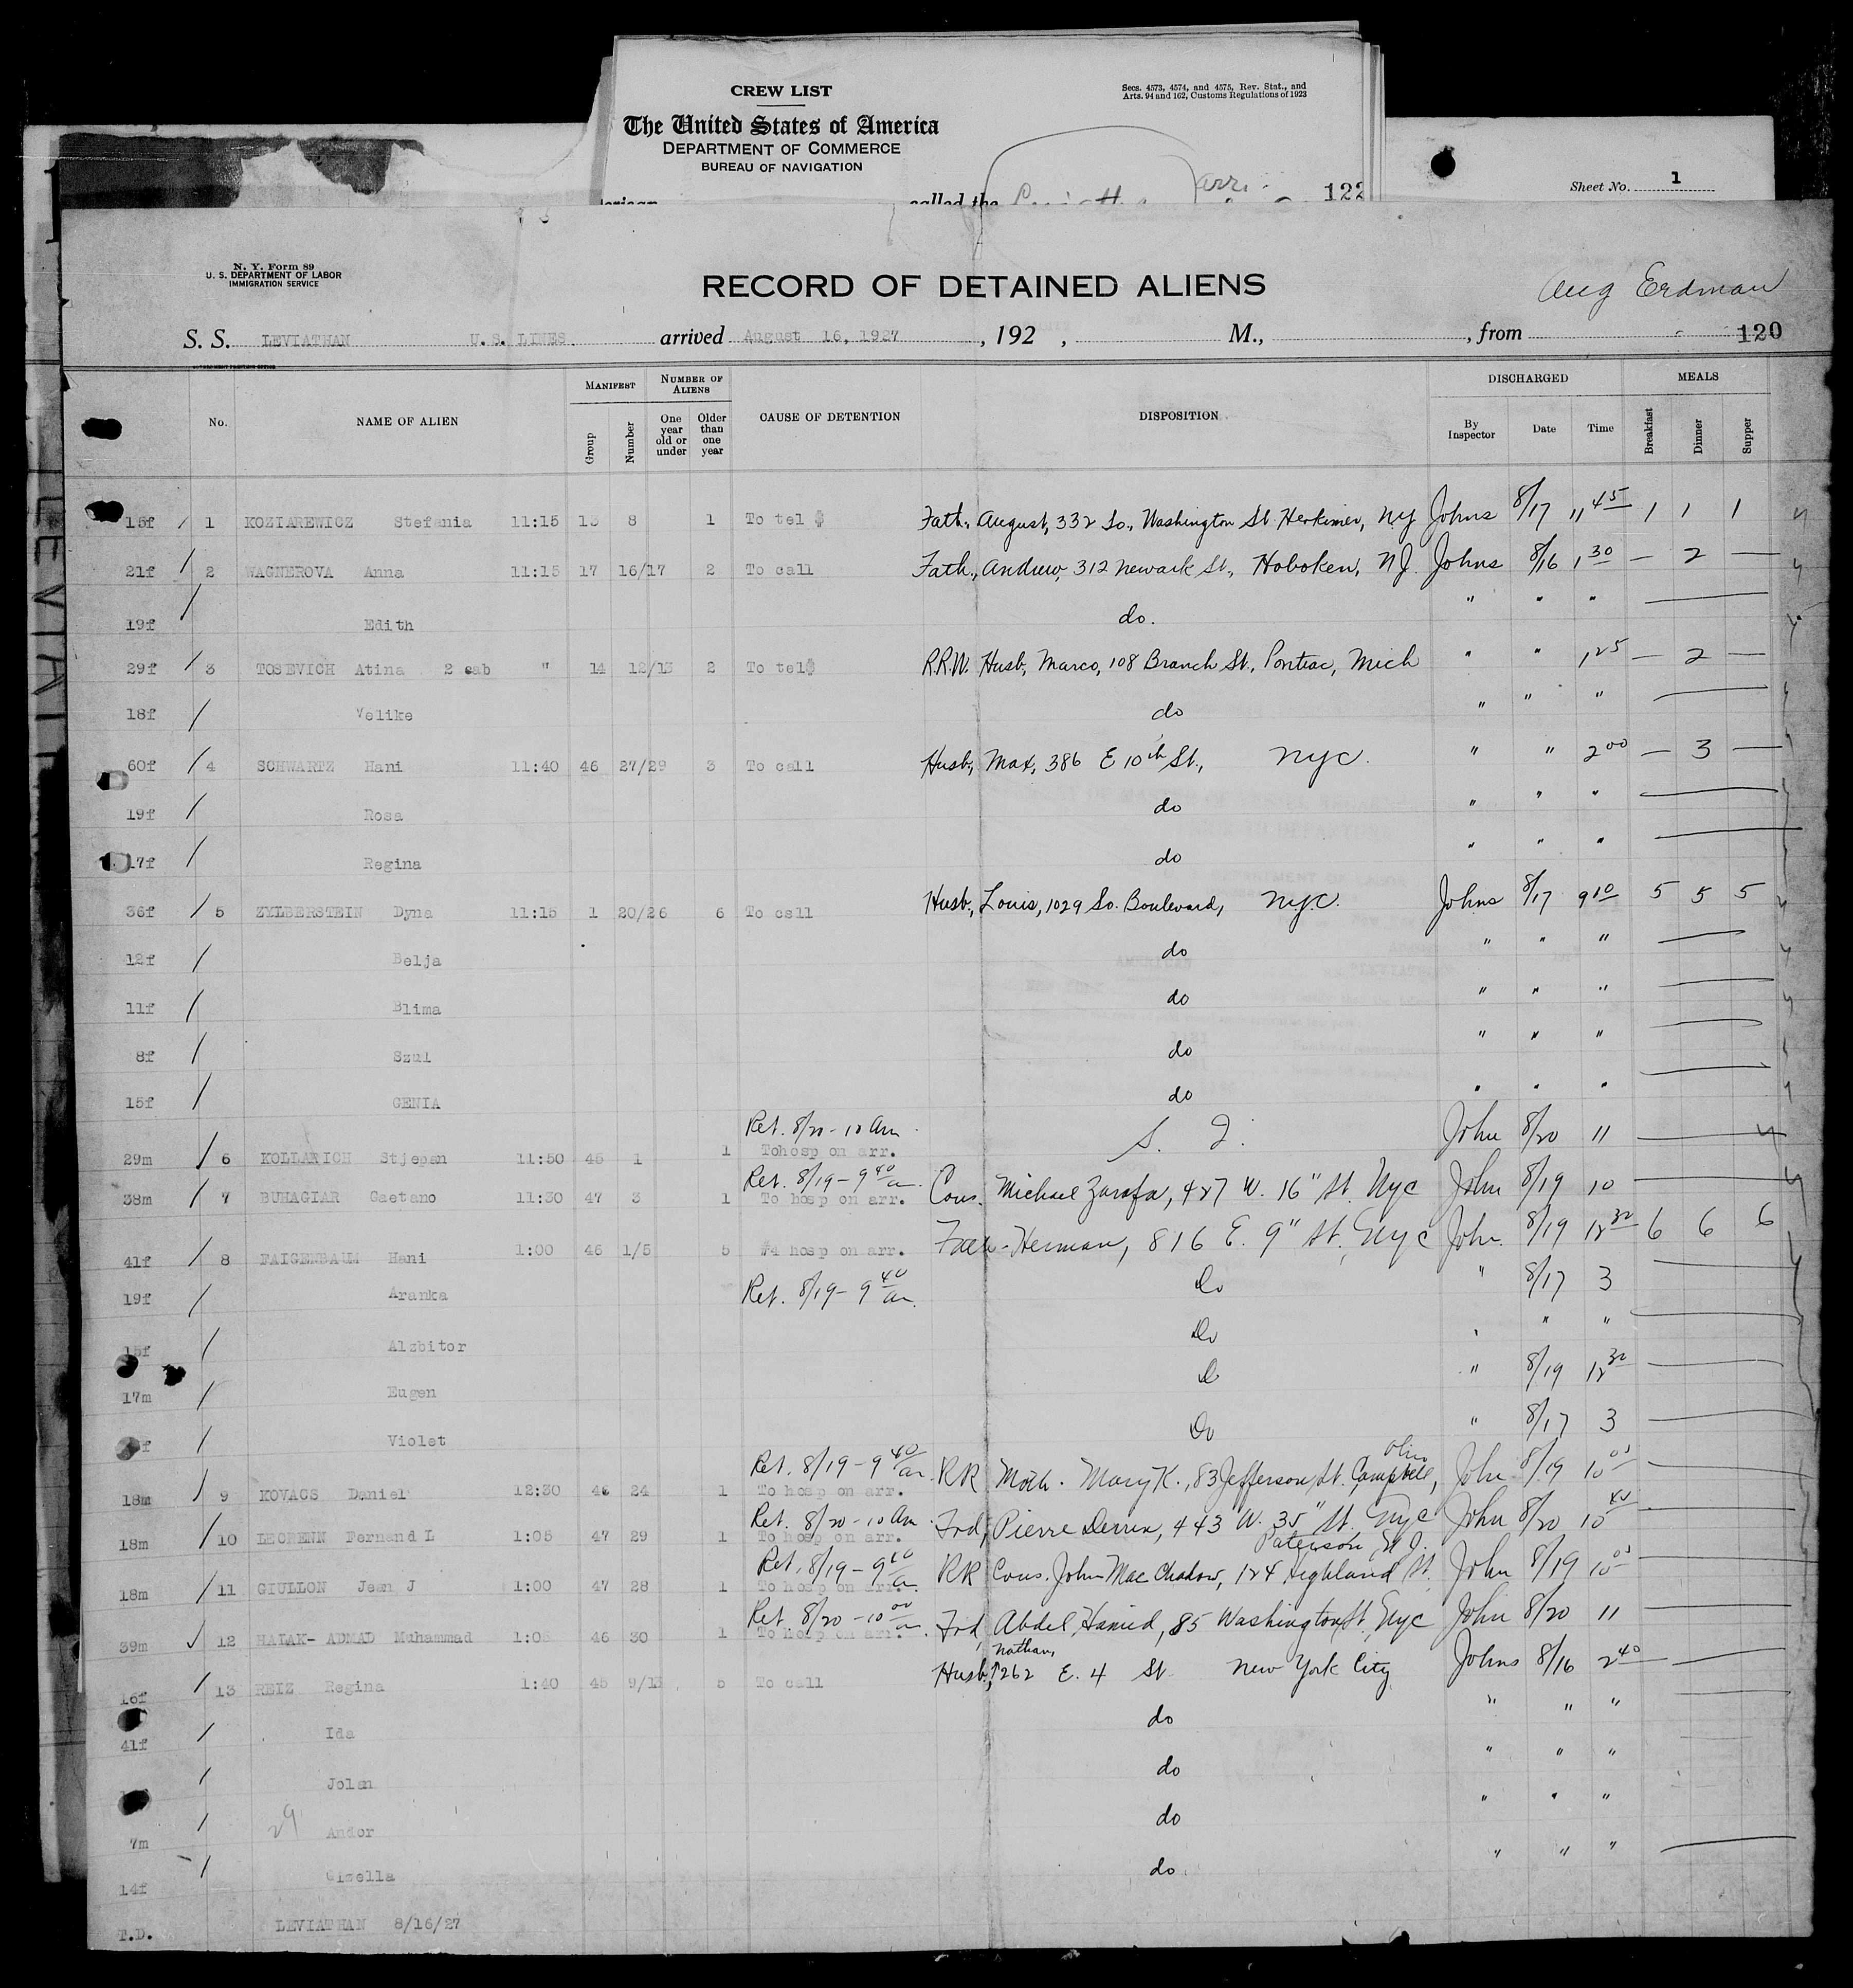 CREW LIST
Secs. 4573, 4574, and 4575, Rev. Stat., and
Arts. 94 and 162, Customs Regulations of 1923
The United States of America
DEPARTMENT OF COMMERCE
BUREAU OF NAVIGATION
called the
122
Sheet No. 1
N. Y. Form 89
U. S. DEPARTMENT OF LABOR
IMMIGRATION SERVICE
RECORD OF DETAINED ALIENS
Aug Erdman
S. S. LEVIATHAN U. S. LINES arrived August 16, 1927, 192 , M., , from 120
No. NAME OF ALIEN MANIFEST Group Number NUMBER OF ALIENS One year old or under Older than one year CAUSE OF DETENTION DISPOSITION DISCHARGED By Inspector Date Time MEALS Breakfast Dinner Supper
15f / 1 KOZIAREWICZ Stefania 11:15 13 8 1 To tel $ Fath., August, 332 So., Washington St. Herkimer, NY Johns 8/17 11 45 1 1 1
21f / 2 WAGNEROVA Anna 11:15 17 16/17 2 To call Fath., Andrew, 312 Newark St., Hoboken, NJ. Johns 8/16 1 30 — 2 —
19f / Edith do. " " "
29f / 3 TOSEVICH Atina 2 cab " 14 12/13 2 To tel$ R.R.W. Husb, Marco, 108 Branch St., Pontiac, Mich " " 1 25 — 2 —
18f / Velike do " " "
60f / 4 SCHWARTZ Hani 11:40 46 27/29 3 To call Husb, Max, 386 E 10th St., NYC. " " 2 00 — 3 —
19f / Rosa do " " "
17f / Regina do " " "
36f / 5 ZYLBERSTEIN Dyna 11:15 1 20/26 6 To call Husb., Louis, 1029 So. Boulevard, NYC. Johns 8/17 9 10 5 5 5
12f / Belja do " " "
11f / Blima do " " "
8f / Szul do " " "
15f / GENIA do " " "
Ret. 8/20 - 10 Am
29m / 6 KOLLARICH Stjepan 11:50 45 1 1 Tohosp on arr. S. I. John 8/20 11
Ret. 8/19 - 9 40 am.
38m / 7 BUHAGIAR Gaetano 11:30 47 3 1 To hosp on arr. Cous. Michael Zarafa, 427 W. 16" St. NYC John 8/19 10
41f / 8 FAIGENBAUM Hani 1:00 46 1/5 5 #4 hosp on arr. Fath - Herman, 816 E. 9" St., NYC John. 8/19 12 30 6 6 6
19f / Aranka Ret. 8/19 - 9 40 am. Do " 8/17 3
15f / Alzbitor Do " " "
17m / Eugen Do " 8/19 12 30
f / Violet Do " 8/17 3
Ret. 8/19 - 9 40 am. Ohio
18m / 9 KOVACS Daniel 12:30 46 24 1 To hosp on arr. RR Moth. Mary K., 83 Jefferson St. Campbell, John 8/19 10 05
Ret. 8/20 - 10 Am
18m / 10 LECRENN Fernand L 1:05 47 29 1 To hosp on arr. Frd, Pierre Derrien, 443 W. 35" St. NYC John 8/20 10 40
Ret. 8/19 - 9 40 am Paterson, N.J.
18m / 11 GIULLON Jean J 1:00 47 28 1 To hosp on arr. RR Cous. John Mac Chadow, 124 Highland St. John 8/19 10 05
Ret. 8/20 - 10 00 am.
39m / 12 HALAK- ADMAD Muhammad 1:05 46 30 1 To hosp on arr. Frd, Abdel Hamid, 85 Washington St., NYC John 8/20 11
Nathan,
16f / 13 REIZ Regina 1:40 45 9/13 5 To call Husb., 262 E. 4 St New York City Johns 8/16 2 40
41f / Ida do " " "
/ Jolan do " " "
7m / 29 Andor do " " "
14f / Gisella do " " "
T.D. LEVIATHAN 8/16/27